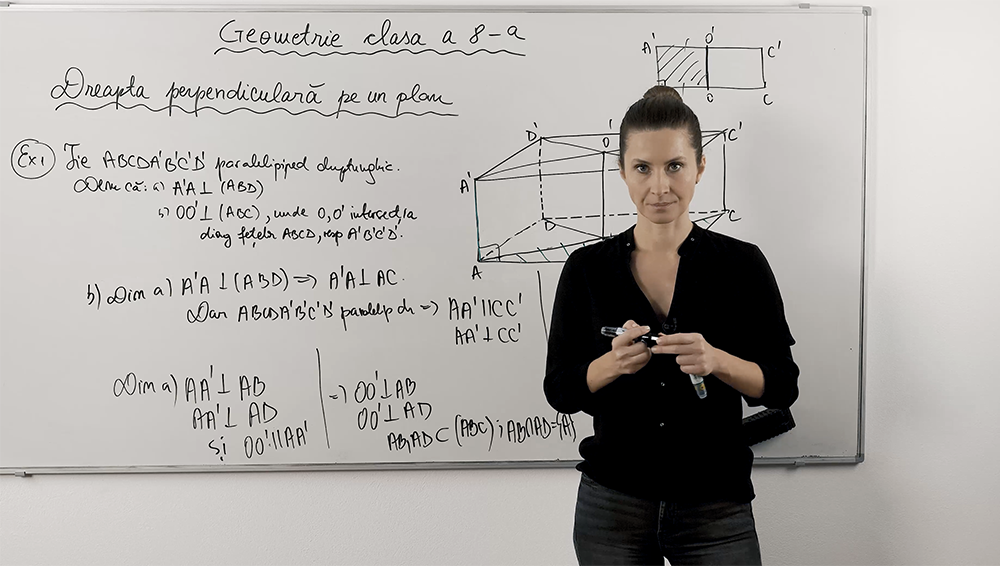 Geometrie clasa a 8-a
Dreapta perpendiculară pe un plan
Ex 1 Fie ABCDA'B'C'D' paralelipiped dreptunghic.
Dem că: a) A'A ⊥ (ABD)
b) OO' ⊥ (ABC), unde O, O' intersecția
diag fețelor ABCD, resp A'B'C'D'.
b) Din a) A'A ⊥ (ABD) => A'A ⊥ AC.
Dar ABCDA'B'C'D' paralelip dr => AA' || CC'
AA' ⊥ CC'
Din a) AA' ⊥ AB
AA' ⊥ AD
și OO' || AA'
=> OO' ⊥ AB
OO' ⊥ AD
AB, AD ⊂ (ABC) ; AB ∩ AD = {A}
A' O' C'
O C
D' O' C'
A'
D C
A